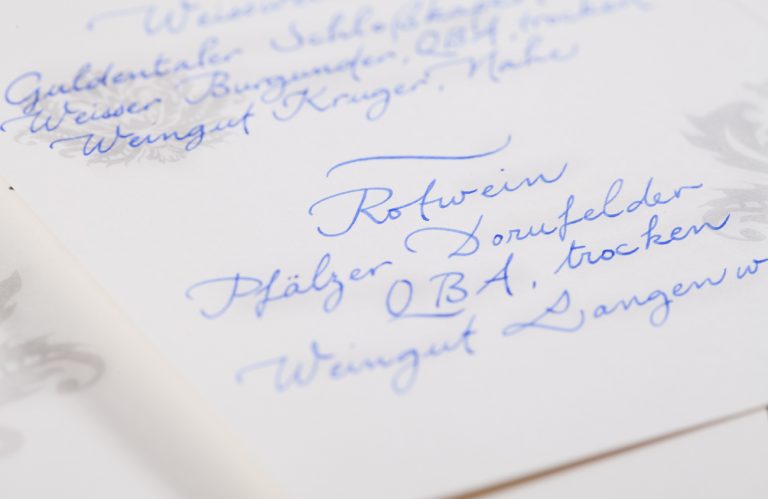 Weisswein
Guldentaler Schloßkapelle
Weisser Burgunder, QBA, trocken
Weingut Kruger, Nahe
Rotwein
Pfälzer Dornfelder
QBA, trocken
Weingut Langenw